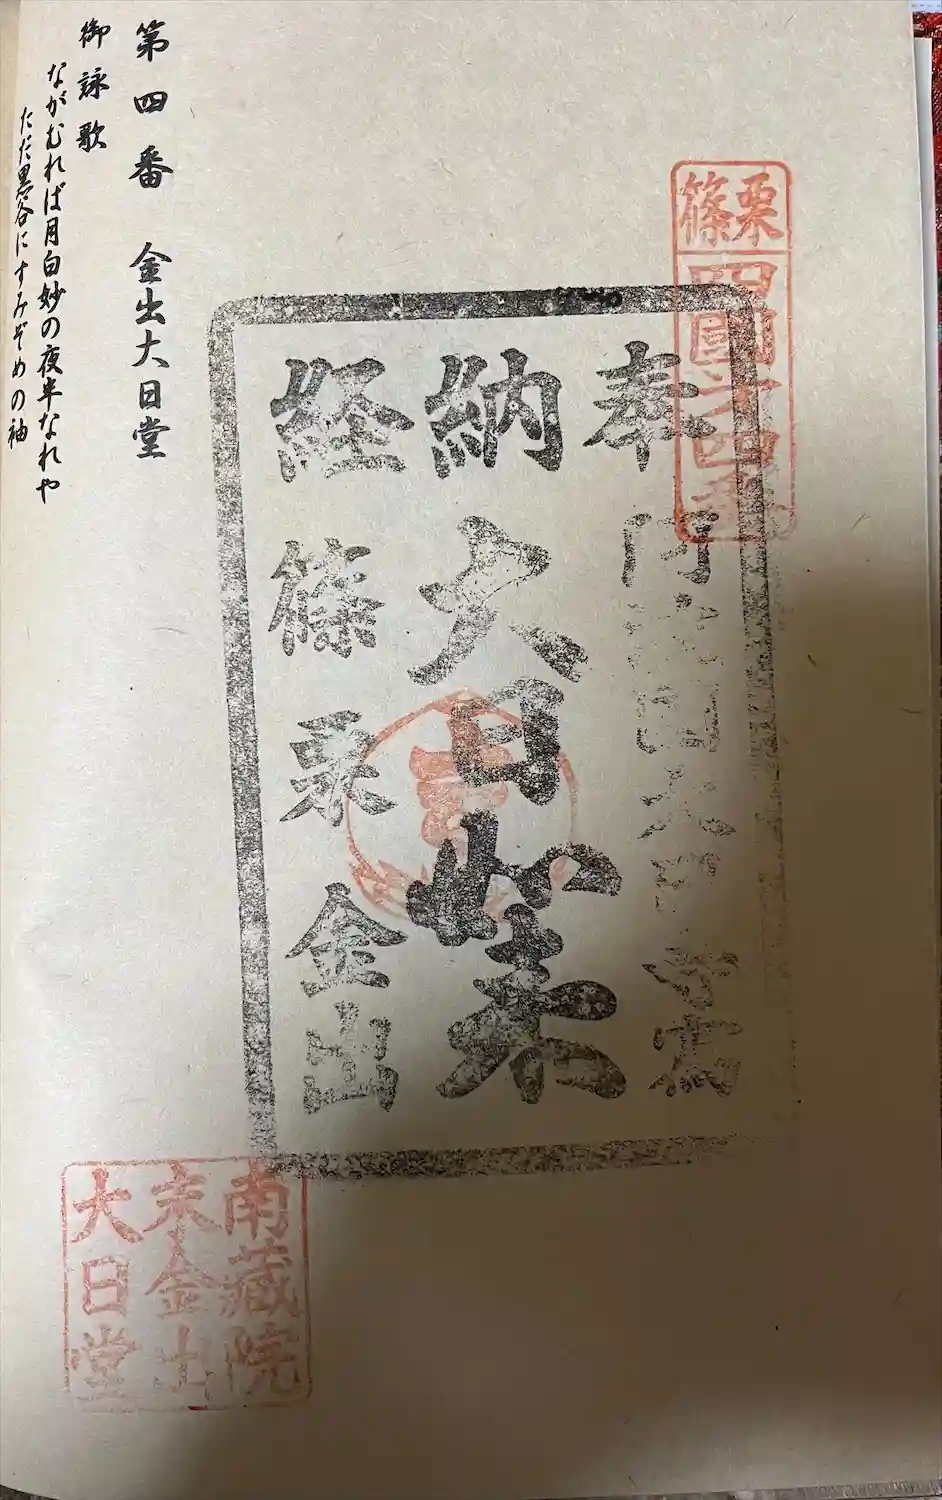 篠栗
四國第四番
奉納経
大日如来
篠栗金出
第四番 金出大日堂
御詠歌
ながむれば月白妙の夜半なれや
ただ黒谷にすみぞめの袖
南藏院
末金出
大日堂